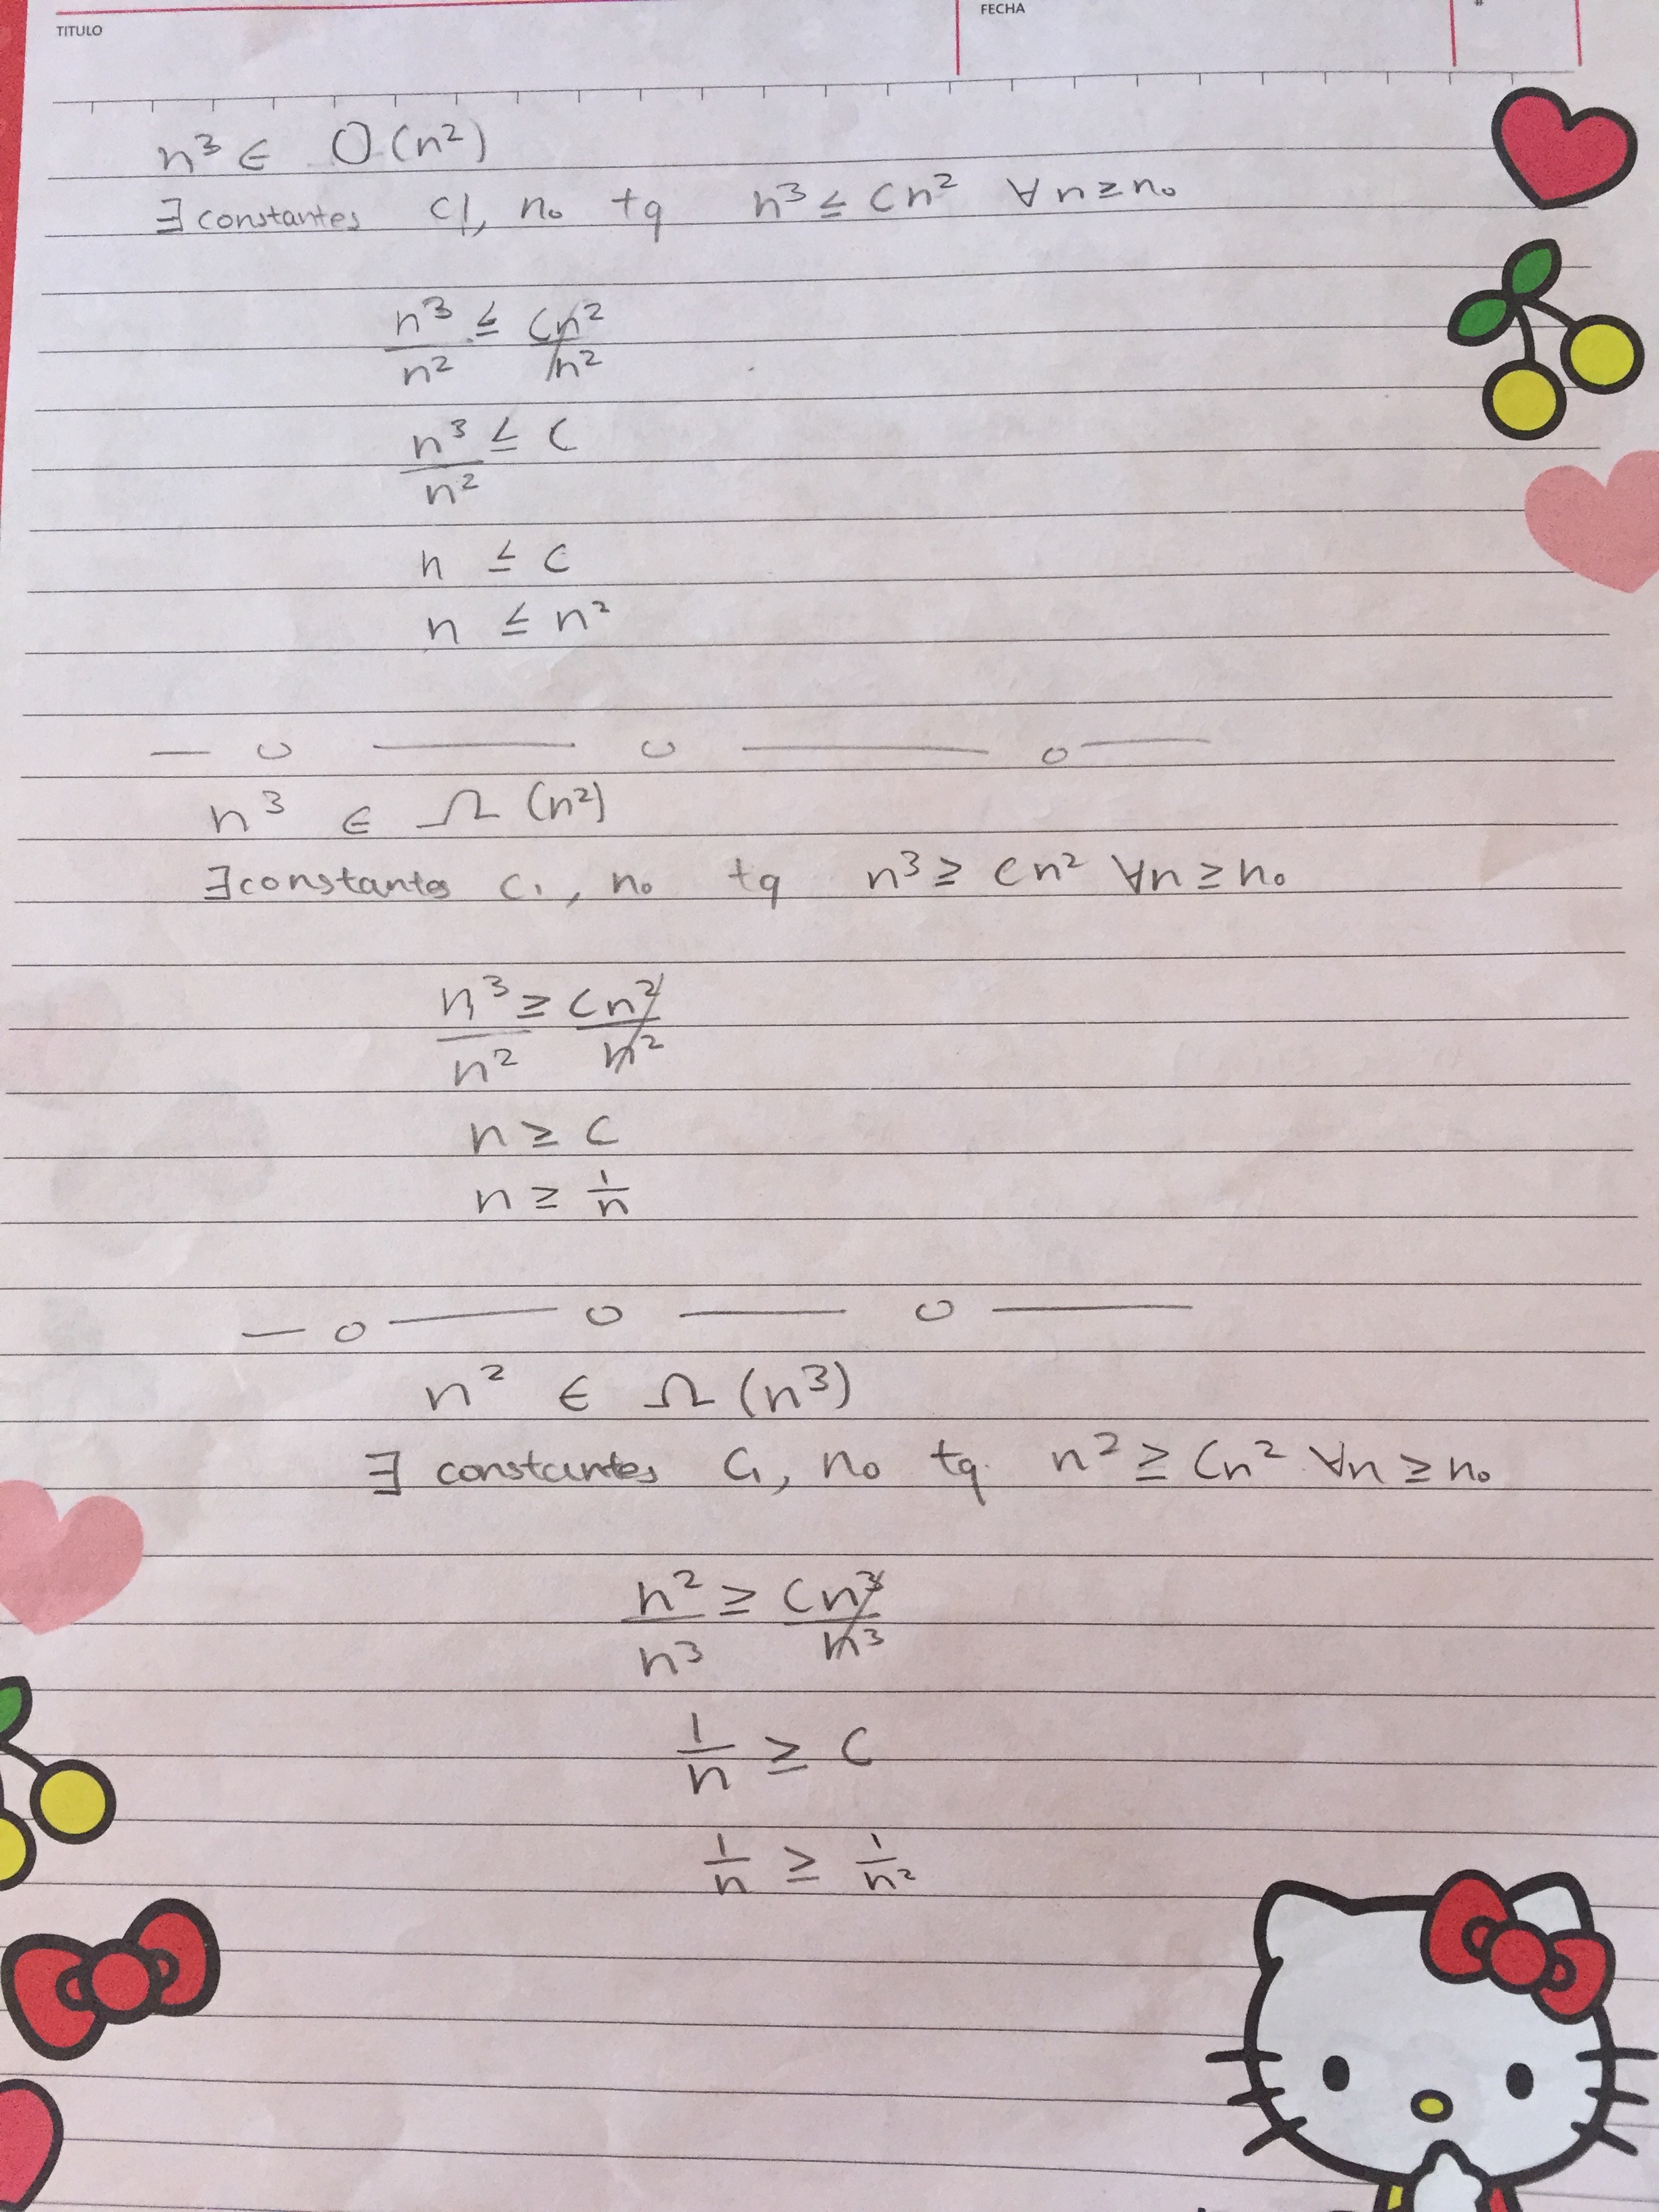 TITULO FECHA #
n³ ∈ O(n²)
∃ constantes c1, n₀ tq n³ ≤ Cn² ∀n≥n₀
n³/n² ≤ Cn²/n²
n³/n² ≤ C
n ≤ C
n ≤ n²
— o — o — o —
n³ ∈ Ω(n²)
∃ constantes C₁, n₀ tq n³ ≥ Cn² ∀n≥n₀
n³/n² ≥ Cn²/n²
n ≥ C
n ≥ 1/n
— o — o — o —
n² ∈ Ω(n³)
∃ constantes C₁, n₀ tq n² ≥ Cn² ∀n≥n₀
n²/n³ ≥ Cn³/n³
1/n ≥ C
1/n ≥ 1/n²